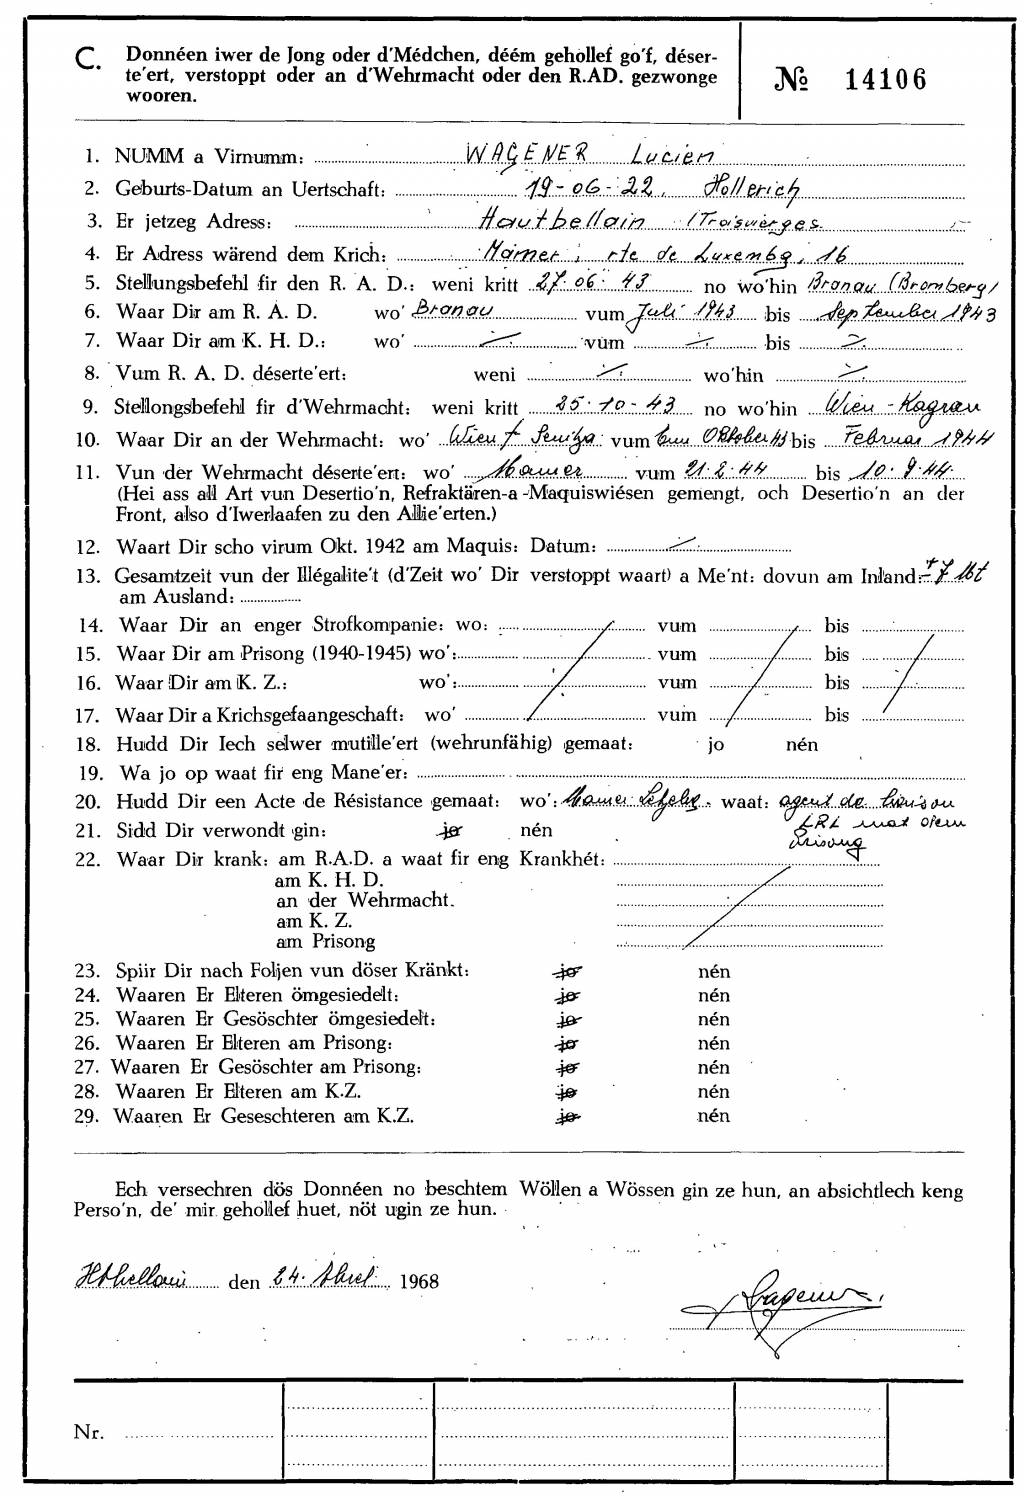 C. Donnéen iwer de Jong oder d'Médchen, déém gehollef go'f, déser-
te'ert, verstoppt oder an d'Wehrmacht oder den R.AD. gezwonge
wooren.
№ 14106
1. NUMM a Virnumm: WAGENER Lucien
2. Geburts-Datum an Uertschaft: 19-06-22. Hollerich
3. Er jetzeg Adress: Hautbellain /Troisvierges
4. Er Adress wärend dem Krich: Mamer, rte de Luxembg, 16
5. Stellungsbefehl fir den R. A. D.: weni kritt 27.06.43 no wo'hin Branau (Bromberg)
6. Waar Dir am R. A. D. wo' Branau vum Juli 1943 bis September 1943
7. Waar Dir am K. H. D.: wo' vum bis
8. Vum R. A. D. déserte'ert: weni wo'hin
9. Stellongsbefehl fir d'Wehrmacht: weni kritt 25.10-43 no wo'hin Wien-Kagran
10. Waar Dir an der Wehrmacht: wo' Wien + vum Oktober 43 bis Februar 1944
11. Vun der Wehrmacht déserte'ert: wo' Mamer vum 21.2.44 bis 10.9.44.
(Hei ass all Art vun Desertio'n, Refraktären-a-Maquiswiésen gemengt, och Desertio'n an der
Front, also d'Iwerlaafen zu den Allie'erten.)
12. Waart Dir scho virum Okt. 1942 am Maquis: Datum:
13. Gesamtzeit vun der Illégalite't (d'Zeit wo' Dir verstoppt waart) a Me'nt: dovun am Inland: ± 7 Mt
am Ausland:
14. Waar Dir an enger Strofkompanie: wo: vum bis
15. Waar Dir am Prisong (1940-1945) wo': vum bis
16. Waar Dir am K. Z.: wo': vum bis
17. Waar Dir a Krichsgefaangeschaft: wo' vum bis
18. Hudd Dir Iech selwer mutille'ert (wehrunfähig) gemaat: jo nén
19. Wa jo op waat fir eng Mane'er:
20. Hudd Dir een Acte de Résistance gemaat: wo': Mamer waat: agent de liaison
LRL mat dem
Prisong
21. Sidd Dir verwondt gin: jo nén
22. Waar Dir krank: am R.A.D. a waat fir eng Krankhét:
am K. H. D.
an der Wehrmacht.
am K. Z.
am Prisong
23. Spiir Dir nach Foljen vun döser Kränkt: jo nén
24. Waaren Er Elteren ömgesiedelt: jo nén
25. Waaren Er Gesöschter ömgesiedelt: jo nén
26. Waaren Er Elteren am Prisong: jo nén
27. Waaren Er Gesöschter am Prisong: jo nén
28. Waaren Er Elteren am K.Z. jo nén
29. Waaren Er Geseschteren am K.Z. jo nén
Ech versechren dös Donnéen no beschtem Wöllen a Wössen gin ze hun, an absichtlech keng
Perso'n, de' mir gehollef huet, nöt ugin ze hun.
den 24. 1968
Wagener
Nr.